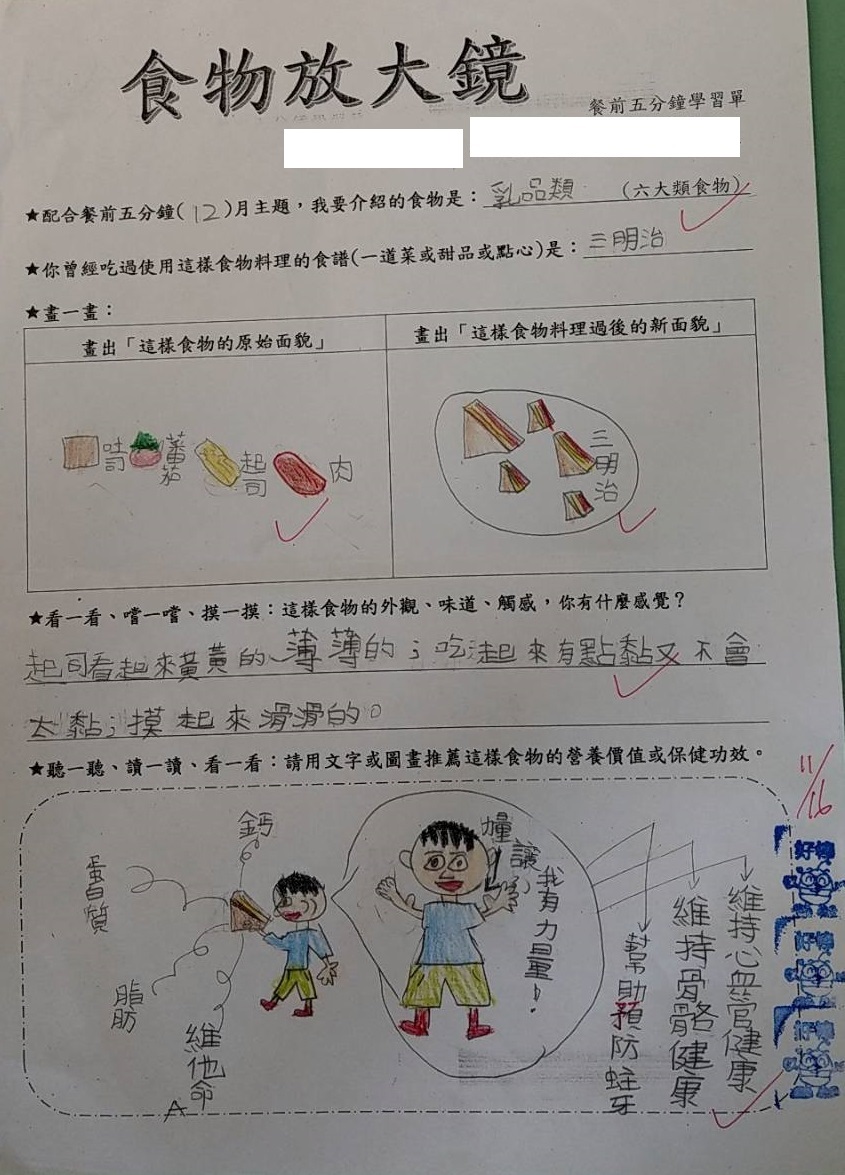 食物放大鏡
餐前五分鐘學習單
★配合餐前五分鐘(12)月主題，我要介紹的食物是：乳品類 (六大類食物)
★你曾經吃過使用這樣食物料理的食譜(一道菜或甜品或點心)是：三明治
★畫一畫：
畫出「這樣食物的原始面貌」
畫出「這樣食物料理過後的新面貌」
蕃茄
起司
肉
三明治
★看一看、嚐一嚐、摸一摸：這樣食物的外觀、味道、觸感，你有什麼感覺？
起司看起來黃黃的、薄薄的；吃起來有點黏又不會
太黏；摸起來滑滑的。
★聽一聽、讀一讀、看一看：請用文字或圖畫推薦這樣食物的營養價值或保健功效。
11/16
鈣
蛋白質
脂肪
維他命A
讓
我有力量！
幫助預防蛀牙
維持骨骼健康
維持心血管健康
好棒
好棒
好棒